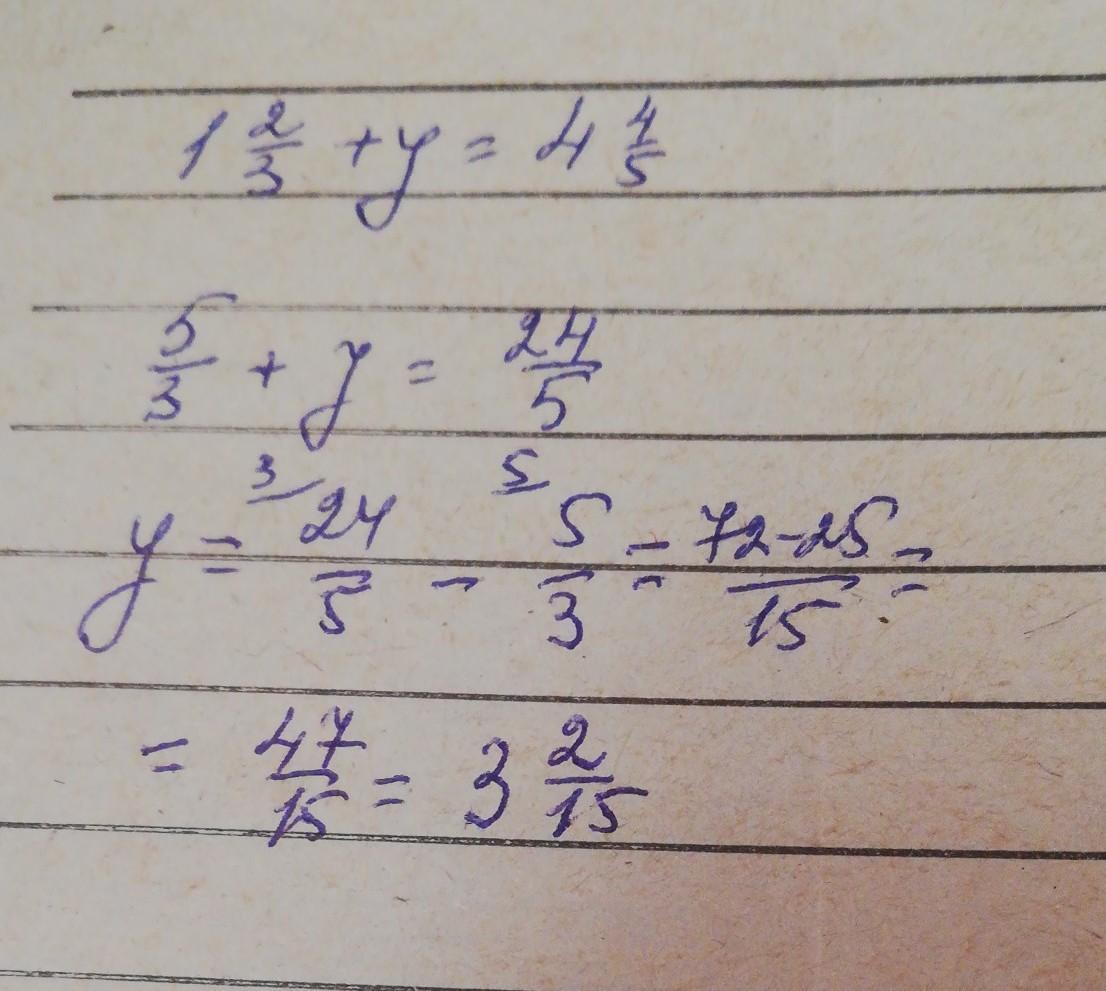 1 2/3 + y = 4 4/5
5/3 + y = 24/5
y = 3/ 24/5 - 5/ 5/3 = 72-25/15 =
= 47/15 = 3 2/15